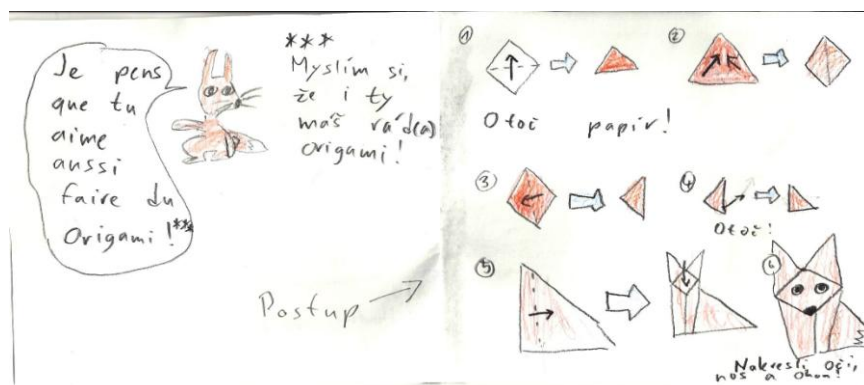 Je pens
que tu
aime
aussi
faire du
Origami!***
***
Myslím si,
že i ty
máš rád(a)
origami!
Postup
1
2
Otoč papír!
3
4
Otoč!
5
6
Nakresli oči,
nos a ohon!